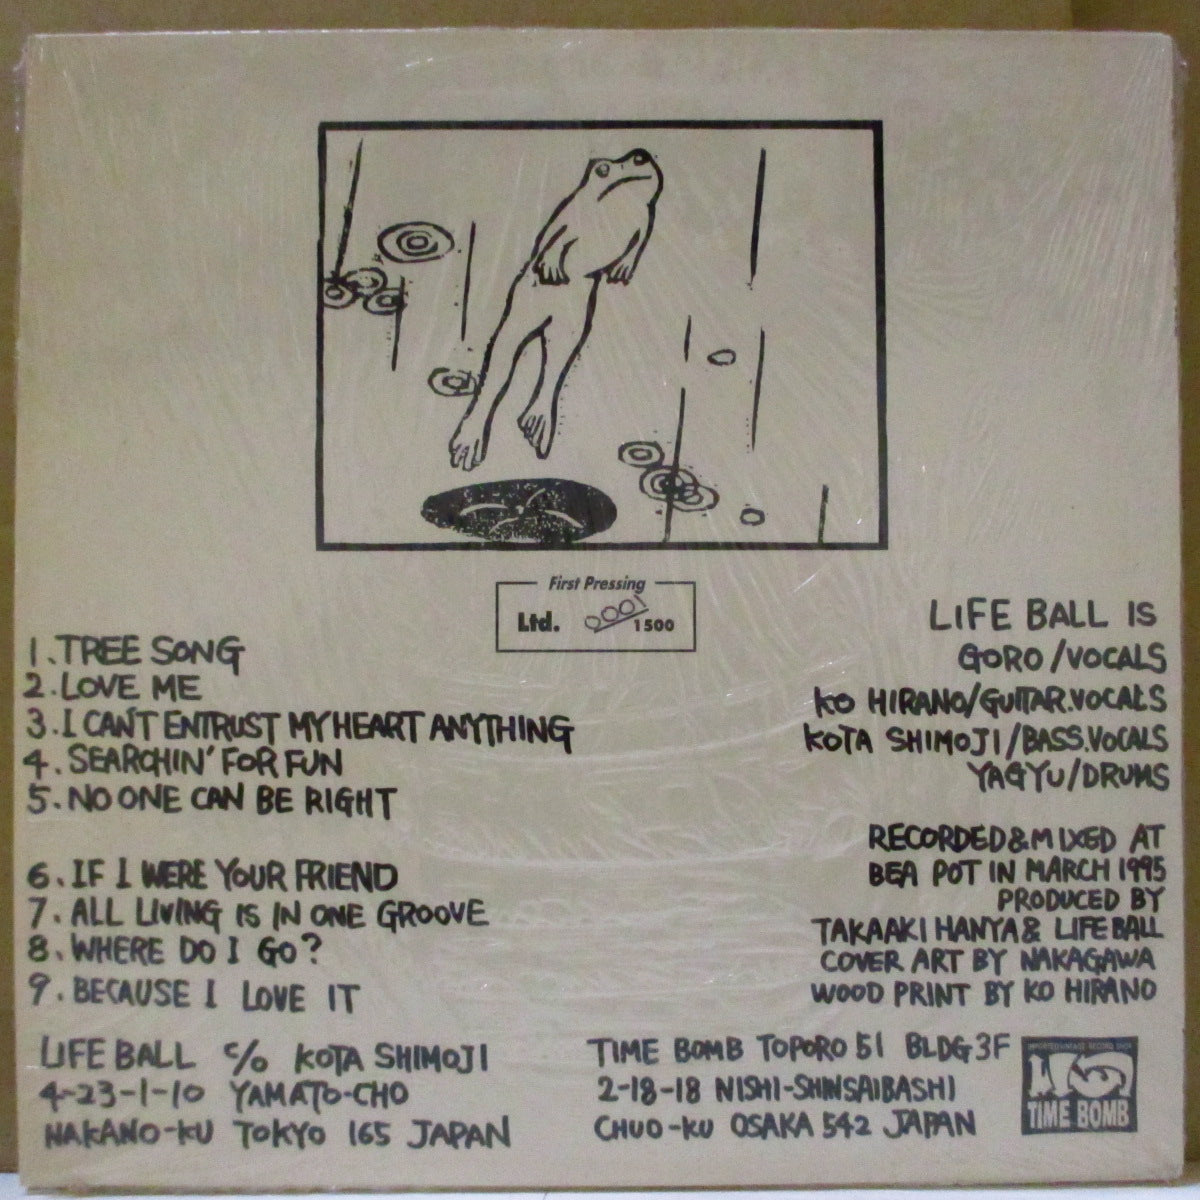 First Pressing
Ltd. 0001/1500
1. TREE SONG
2. LOVE ME
3. I CAN'T ENTRUST MY HEART ANYTHING
4. SEARCHIN' FOR FUN
5. NO ONE CAN BE RIGHT
6. IF I WERE YOUR FRIEND
7. ALL LIVING IS IN ONE GROOVE
8. WHERE DO I GO?
9. BECAUSE I LOVE IT
LIFE BALL IS
GORO/VOCALS
KO HIRANO/GUITAR.VOCALS
KOTA SHIMOJI/BASS.VOCALS
YAGYU/DRUMS
RECORDED&MIXED AT
BEA POT IN MARCH 1995
PRODUCED BY
TAKAAKI HANYA& LIFE BALL
COVER ART BY NAKAGAWA
WOOD PRINT BY KO HIRANO
LIFE BALL c/o KOTA SHIMOJI
4-23-1-10 YAMATO-CHO
NAKANO-KU TOKYO 165 JAPAN
TIME BOMB TOPORO 51 BLDG 3F
2-18-18 NISHI-SHINSAIBASHI
CHUO-KU OSAKA 542 JAPAN
TIME BOMB